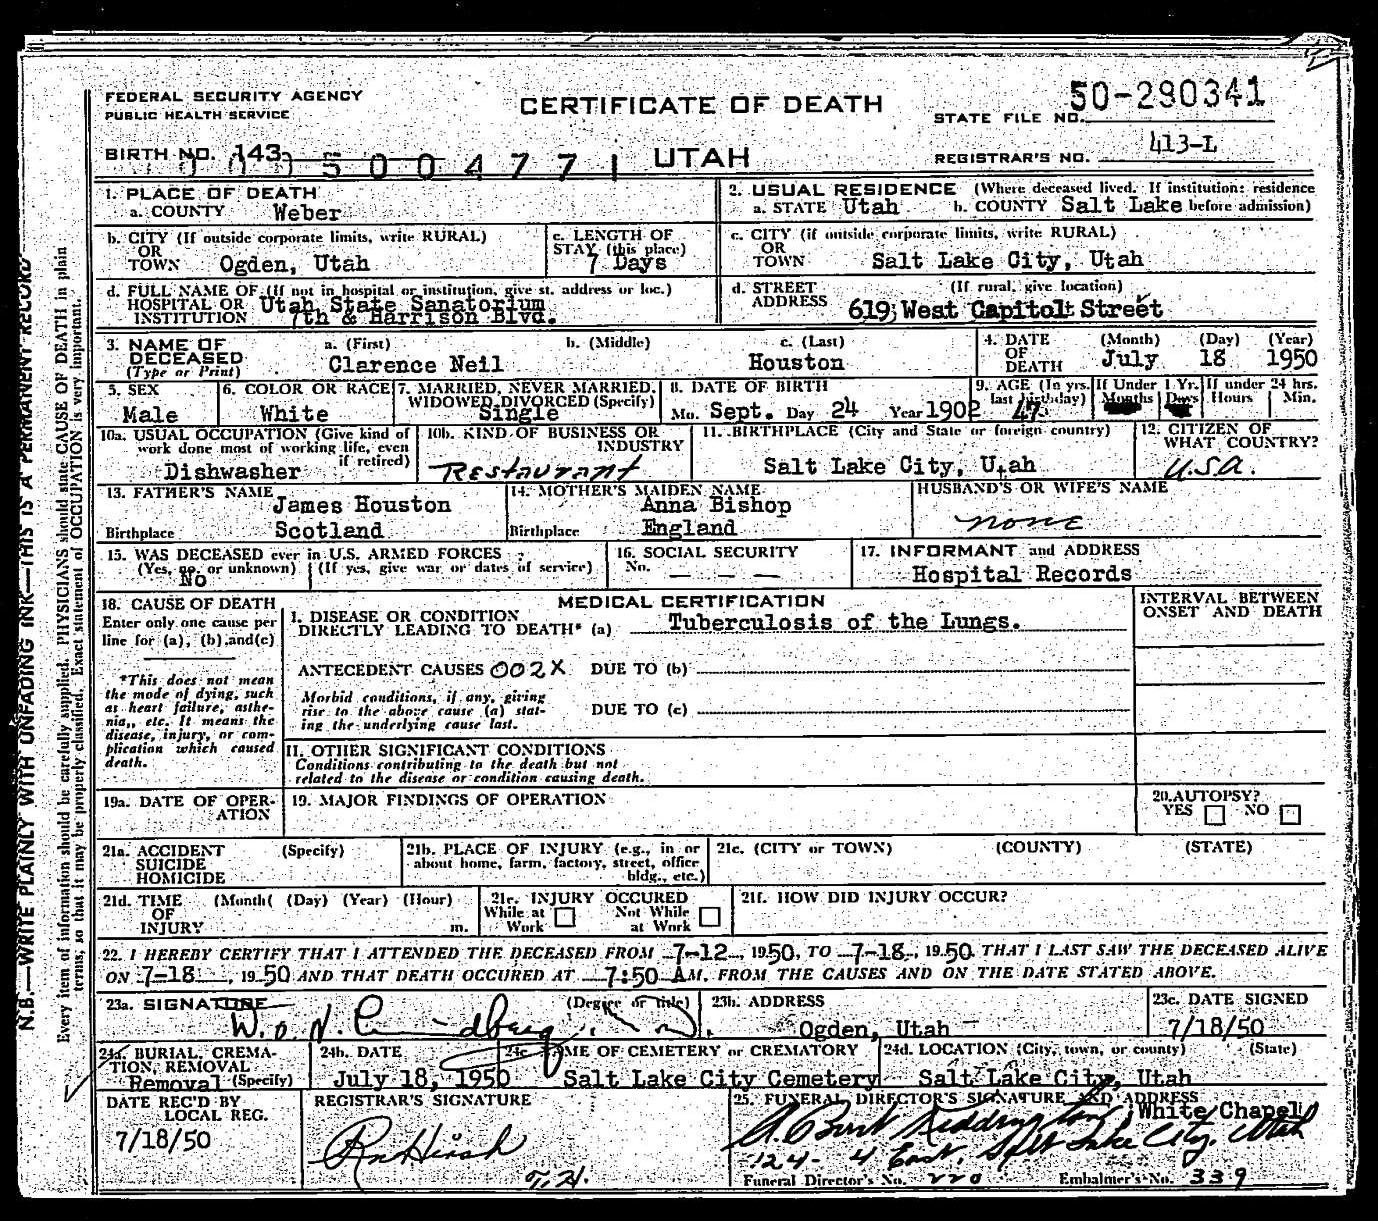 FEDERAL SECURITY AGENCY
PUBLIC HEALTH SERVICE
CERTIFICATE OF DEATH
50-290341
STATE FILE NO.
BIRTH NO. 143
5004771
UTAH
413-L
REGISTRAR'S NO.
1. PLACE OF DEATH
a. COUNTY Weber
2. USUAL RESIDENCE (Where deceased lived. If institution: residence
a. STATE Utah b. COUNTY Salt Lake before admission)
b. CITY (If outside corporate limits, write RURAL)
OR
TOWN Ogden, Utah
c. LENGTH OF
STAY (this place)
7 Days
c. CITY (if outside corporate limits, write RURAL)
OR
TOWN Salt Lake City, Utah
d. FULL NAME OF (If not in hospital or institution, give st. address or loc.)
HOSPITAL OR Utah State Sanatorium
INSTITUTION 7th & Harrison Blvd.
d. STREET (If rural, give location)
ADDRESS 619 West Capitol Street
3. NAME OF a. (First) b. (Middle) c. (Last)
DECEASED Clarence Neil Houston
(Type or Print)
4. DATE (Month) (Day) (Year)
OF
DEATH July 18 1950
5. SEX
Male
6. COLOR OR RACE
White
7. MARRIED, NEVER MARRIED,
WIDOWED, DIVORCED (Specify)
Single
8. DATE OF BIRTH
Mo. Sept. Day 24 Year 1902
9. AGE (In yrs.
last birthday)
47
If Under 1 Yr.
Months Days
If under 24 hrs.
Hours Min.
10a. USUAL OCCUPATION (Give kind of
work done most of working life, even
if retired)
Dishwasher
10b. KIND OF BUSINESS OR
INDUSTRY
Restaurant
11. BIRTHPLACE (City and State or foreign country)
Salt Lake City, Utah
12. CITIZEN OF
WHAT COUNTRY?
U.S.A.
13. FATHER'S NAME
James Houston
Birthplace Scotland
14. MOTHER'S MAIDEN NAME
Anna Bishop
Birthplace England
HUSBAND'S OR WIFE'S NAME
none
15. WAS DECEASED ever in U.S. ARMED FORCES ?
(Yes, no, or unknown) (If yes, give war or dates of service)
No
16. SOCIAL SECURITY
No. — — —
17. INFORMANT and ADDRESS
Hospital Records
18. CAUSE OF DEATH
Enter only one cause per
line for (a), (b), and (c)
*This does not mean
the mode of dying, such
as heart failure, asthe-
nia,, etc. It means the
disease, injury, or com-
plication which caused
death.
MEDICAL CERTIFICATION
I. DISEASE OR CONDITION
DIRECTLY LEADING TO DEATH* (a) Tuberculosis of the Lungs.
ANTECEDENT CAUSES 002X DUE TO (b)
Morbid conditions, if any, giving
rise to the above cause (a) stat-
ing the underlying cause last.
DUE TO (c)
II. OTHER SIGNIFICANT CONDITIONS
Conditions contributing to the death but not
related to the disease or condition causing death.
INTERVAL BETWEEN
ONSET AND DEATH
19a. DATE OF OPER-
ATION
19. MAJOR FINDINGS OF OPERATION
20. AUTOPSY?
YES NO
21a. ACCIDENT (Specify)
SUICIDE
HOMICIDE
21b. PLACE OF INJURY (e.g., in or
about home, farm, factory, street, office
bldg., etc.)
21c. (CITY or TOWN) (COUNTY) (STATE)
21d. TIME (Month( (Day) (Year) (Hour)
OF
INJURY m.
21e. INJURY OCCURED
While at Not While
Work at Work
21f. HOW DID INJURY OCCUR?
22. I HEREBY CERTIFY THAT I ATTENDED THE DECEASED FROM 7-12, 1950, TO 7-18, 1950. THAT I LAST SAW THE DECEASED ALIVE
ON 7-18, 1950 AND THAT DEATH OCCURED AT 7:50 AM. FROM THE CAUSES AND ON THE DATE STATED ABOVE.
23a. SIGNATURE (Degree or title)
23b. ADDRESS
Ogden, Utah
23c. DATE SIGNED
7/18/50
24a. BURIAL, CREMA-
TION, REMOVAL
Removal (Specify)
24b. DATE
July 18, 1950
24c. NAME OF CEMETERY or CREMATORY
Salt Lake City Cemetery
24d. LOCATION (City, town, or county) (State)
Salt Lake City, Utah
DATE REC'D BY
LOCAL REG.
7/18/50
REGISTRAR'S SIGNATURE
T.H.
25. FUNERAL DIRECTOR'S SIGNATURE AND ADDRESS
White Chapel
124 - 4 East, Salt Lake City, Utah
Funeral Director's No. 220 Embalmer's No. 339
N.B.—WRITE PLAINLY WITH UNFADING INK—THIS IS A PERMANENT RECORD
Every item of information should be carefully supplied. PHYSICIANS should state CAUSE OF DEATH in plain
terms, so that it may be properly classified. Exact statement of OCCUPATION is very important.